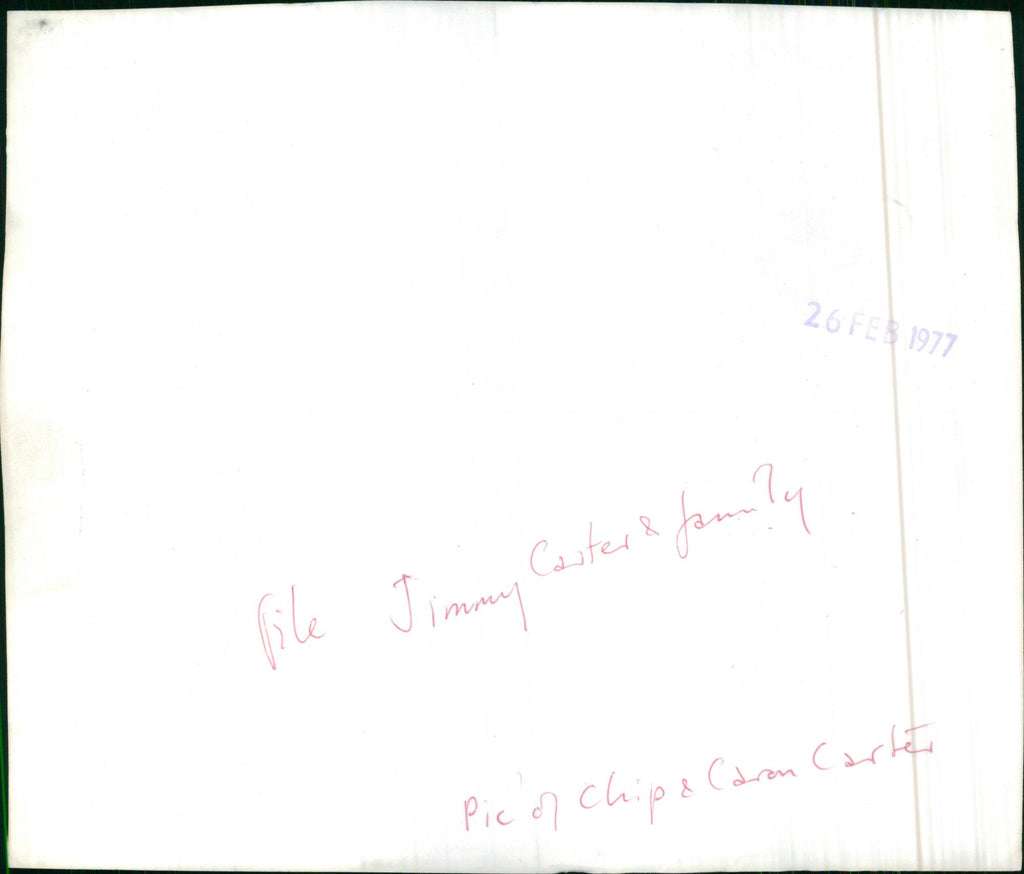 26 FEB 1977
file Jimmy Carter & family
Pic of Chip & Caron Carter